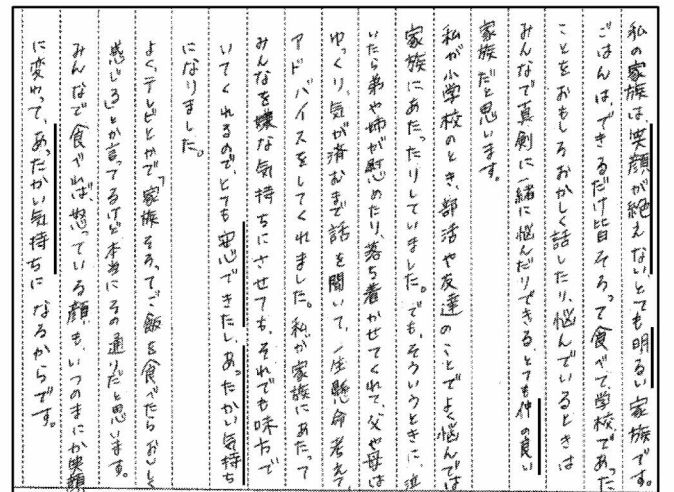 私の家族は、笑顔が絶えないとても明るい家族です。
ごはんは、できるだけ皆そろって食べて、学校であった
ことをおもしろおかしく話したり、悩んでいるときは
みんなで真剣に一緒に悩んだりできる、とても仲の良い
家族だと思います。
私が小学校のとき、部活や友達のことでよく悩んでは
家族にあたったりしていました。でも、そういうときに、泣
いたら弟や姉が慰めたり、落ち着かせてくれて、父や母は
ゆっくり、気が済むまで話を聞いて、一生懸命考えて、
アドバイスをしてくれました。私が家族にあたって
みんなを嫌な気持ちにさせても、それでも味方で
いてくれるので、とても安心できたし、あったかい気持ち
になりました。
よく、テレビとかで「家族そろってご飯を食べたらおいしく
感じる」とか言ってるけど本当にその通りだと思います。
みんなで食べれば、怒っている顔もいつのまにか笑顔
に変わって、あったかい気持ちになるからです。